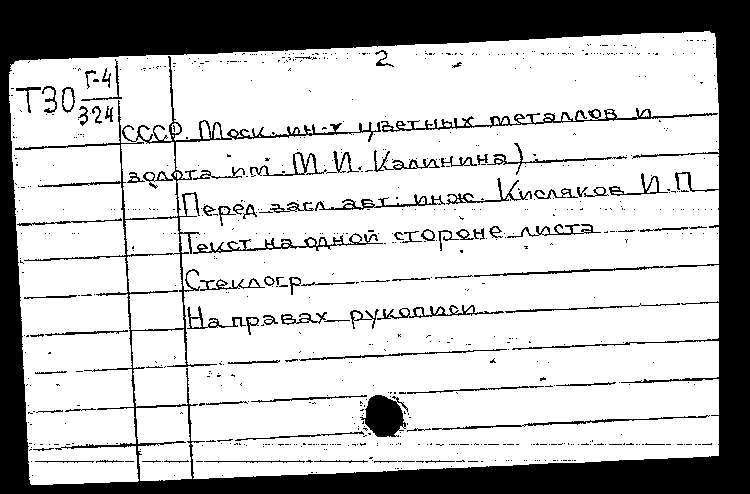 2
Т30 Г-4
324
СССР. Моск. ин-т цветных металлов и
золота им. М.И. Калинина).
Перед загл. авт.: инж. Кисляков И.П
Текст на одной стороне листа
Стеклогр.
На правах рукописи.